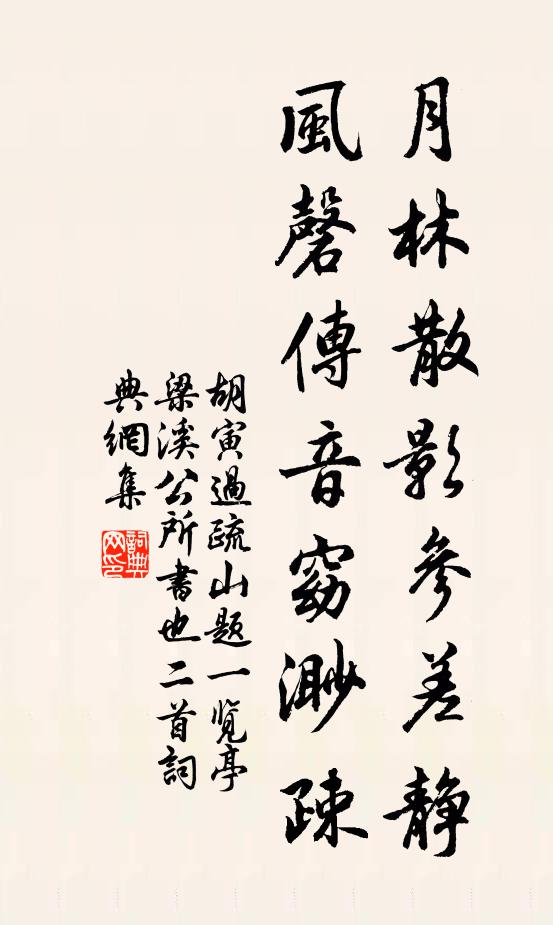 月林散影參差靜
風磬傳音窈渺疎
胡寅過疏山題一覽亭
梁溪公所書也二首詞
典網集
詞典网印